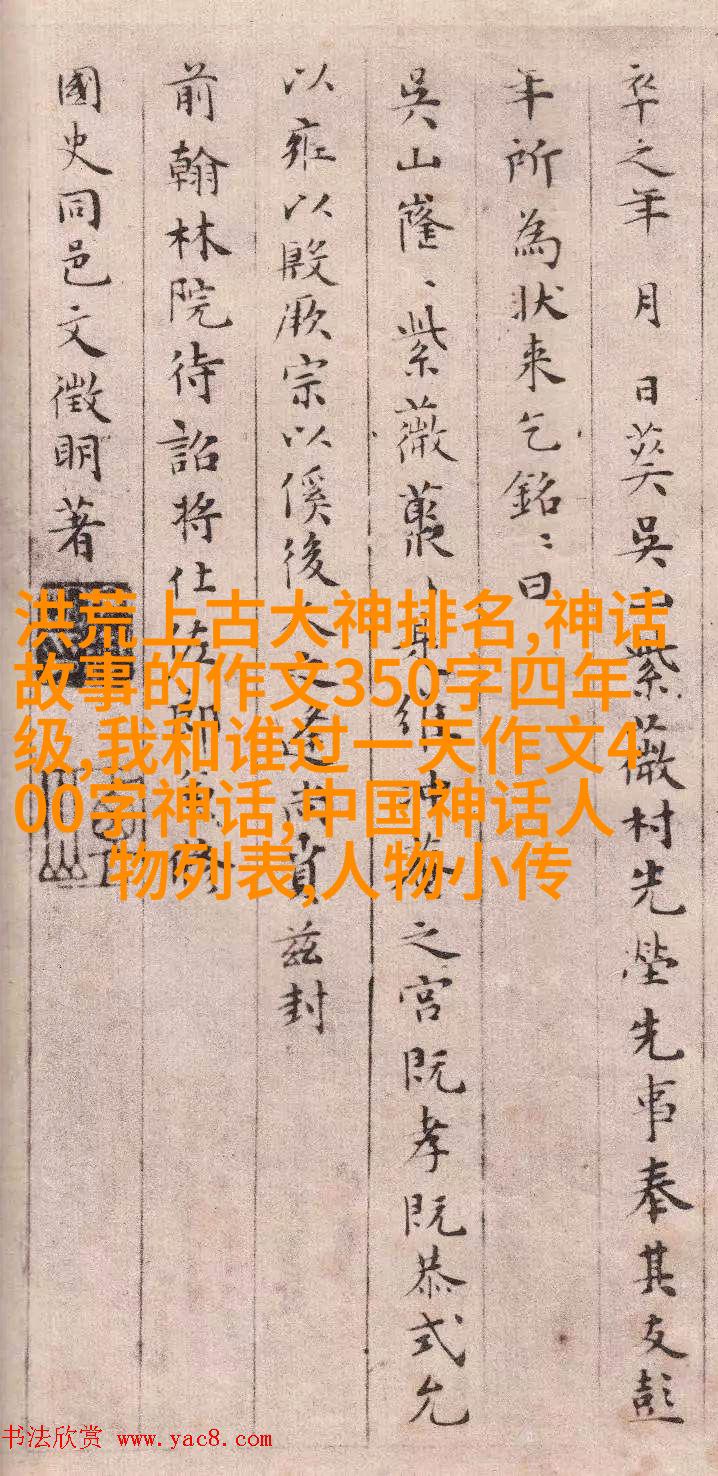 卒之年月日葬吴山紫薇村先塋先事奉其友彭
年所為狀来乞銘〻曰
吳山㠥〻紫薇叢〻
之宮既孝既恭式允
以雍以殷厥宗以傒後人
茲封
前翰林院待詔將仕佐郎兼修
國史同邑文徵明著
洪荒上古大神排名,神话
故事的作文350字四年
级,我和谁过一天作文4
00字神话,中国神话人
物列表,人物小传
书法欣赏 www.yac8.com